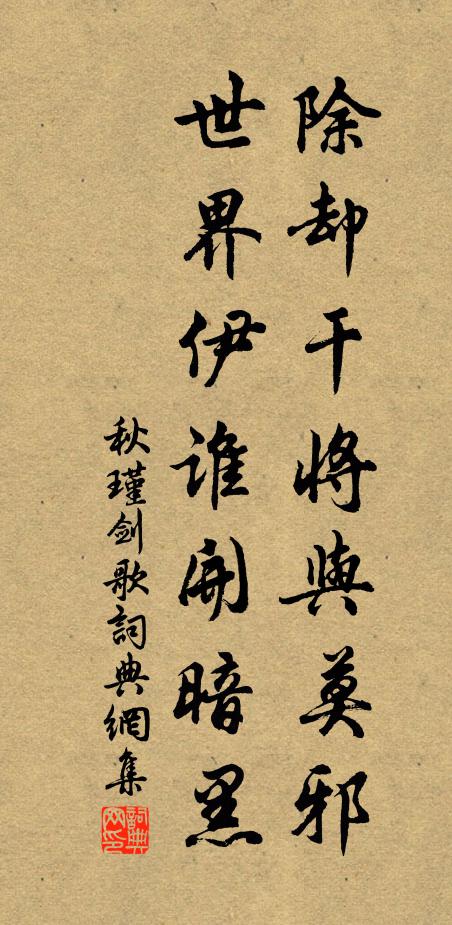 除却干將與莫邪
世界伊誰開暗黑
秋瑾剑歌詞典網集
詞典網印